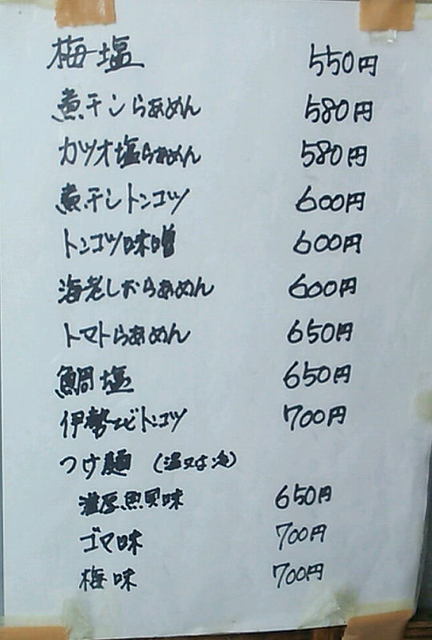 梅塩 550円
煮干しらぁめん 580円
カツオ塩らぁめん 580円
煮干しトンコツ 600円
トンコツ味噌 600円
海老しおらぁめん 600円
トマトらぁめん 650円
鯛塩 650円
伊勢エビトンコツ 700円
つけ麺 (温又は冷)
濃厚魚貝味 650円
ゴマ味 700円
梅味 700円